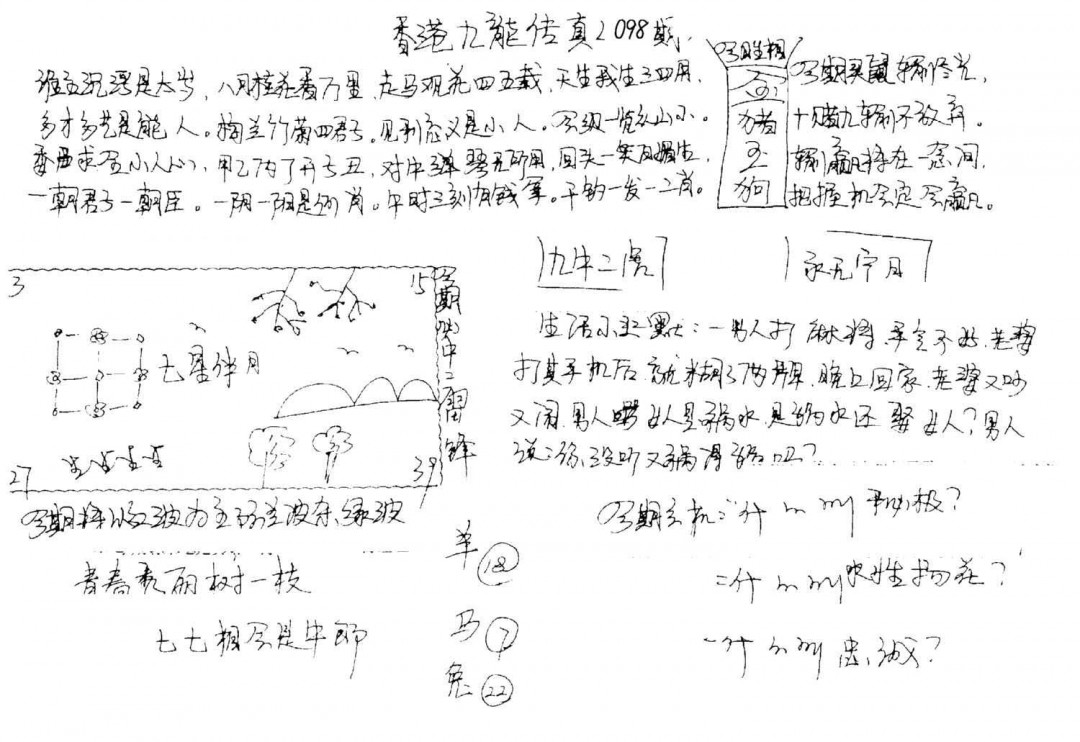 香港九龍传真2098期
谁主沉浮是太岁，八月桂花香万里，走马观花四五载，天生我生三四用，
多才多艺是能人。梅兰竹菊四君子，见利忘义是小人。会级一览众山小。
求金小人心，甲乙丙丁开七丑，对牛弹琴无所用，回头一笑百媚生，
一朝君子一朝臣。一阴一阳是外肖。午时三刻有钱拿。千钧一发一二肖。
今期生相
猪
五
狗
今期买鼠输修光，
十赌九输不放弃。
输赢只在一念间，
把握机会定会赢。
九牛二虎
永无宁日
3
15
27
39
七星伴月
今期必中二留锋
生活小幽默：一男人打麻将手气不好，老婆
打其手机后就糊了两牌，晚上回家老婆又吵
又闹，男人女人是祸水，是祸水还娶女人？男人
说：你没听又祸得福吗？
今期将以红波为主防兰波存绿波
青春秀丽树一枝
七七相会是牛郎
羊 18
马 7
兔 22
今期玄机：什么叫积极？
二什么叫水性扬花？
一什么叫忠诚？